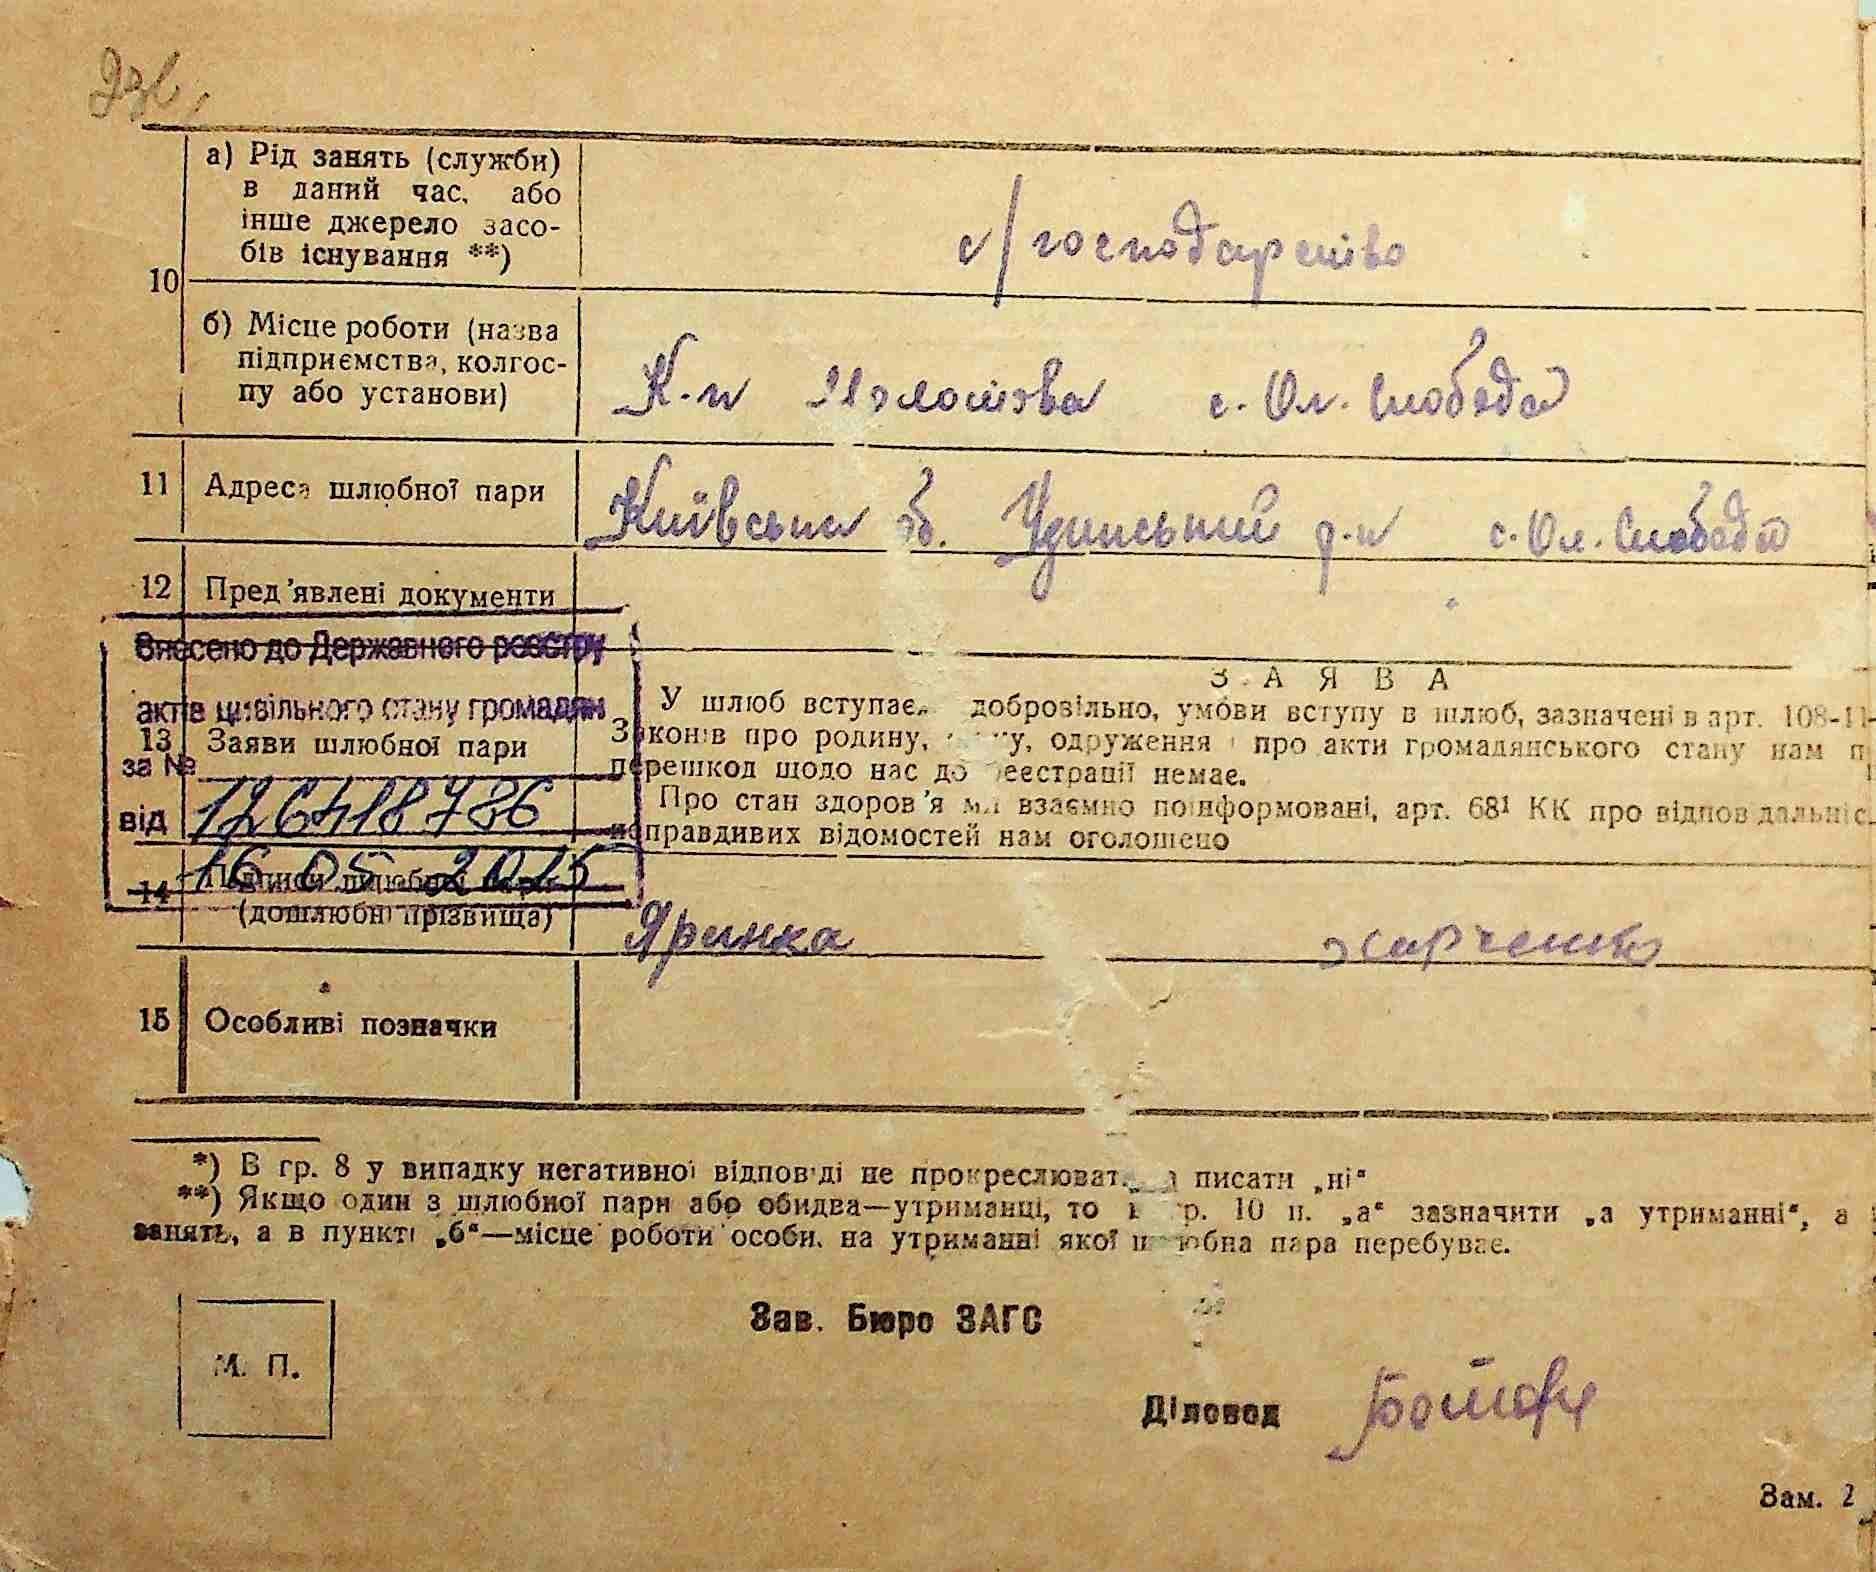 а) Рід занять (служби)
в даний час, або
інше джерело засо-
бів існування **)
с/господарство
10
б) Місце роботи (назва
підприємства, колгос-
пу або установи)
К-п Молотова с. Ол. Слобода
11 Адреса шлюбної пари
Київська об. р-н с. Ол. Слобода
12 Пред'явлені документи
Внесено до Державного реєстру
актів цивільного стану громадян
за №
126418786
від
16 05 2015
13 Заяви шлюбної пари
ЗАЯВА
У шлюб вступає доброзільно, умови вступу в шлюб, зазначені в арт. 108-11
Законів про родину, одруження про акти громадянського стану нам
перешкод щодо нас до реєстрації немає.
Про стан здоров'я ми взаємно поінформовані, арт. 68¹ КК про
неправдивих відомостей нам оголошено
14 Підписи шлюбної пари
(дошлюбні прізвища)
Яринка Харченко
15 Особливі позначки
*) В гр. 8 у випадку негативної відповіді не прокреслюват писати „ні“
**) Якщо один з шлюбної пари або обидва—утриманці, то гр. 10 п. „а“ зазначити „а утриманні“, а
занять, а в пункті „б“—місце роботи особи, на утриманні якої шлюбна пара перебуває.
М. П.
Зав. Бюро ЗАГС
Діловод
Зам. 2